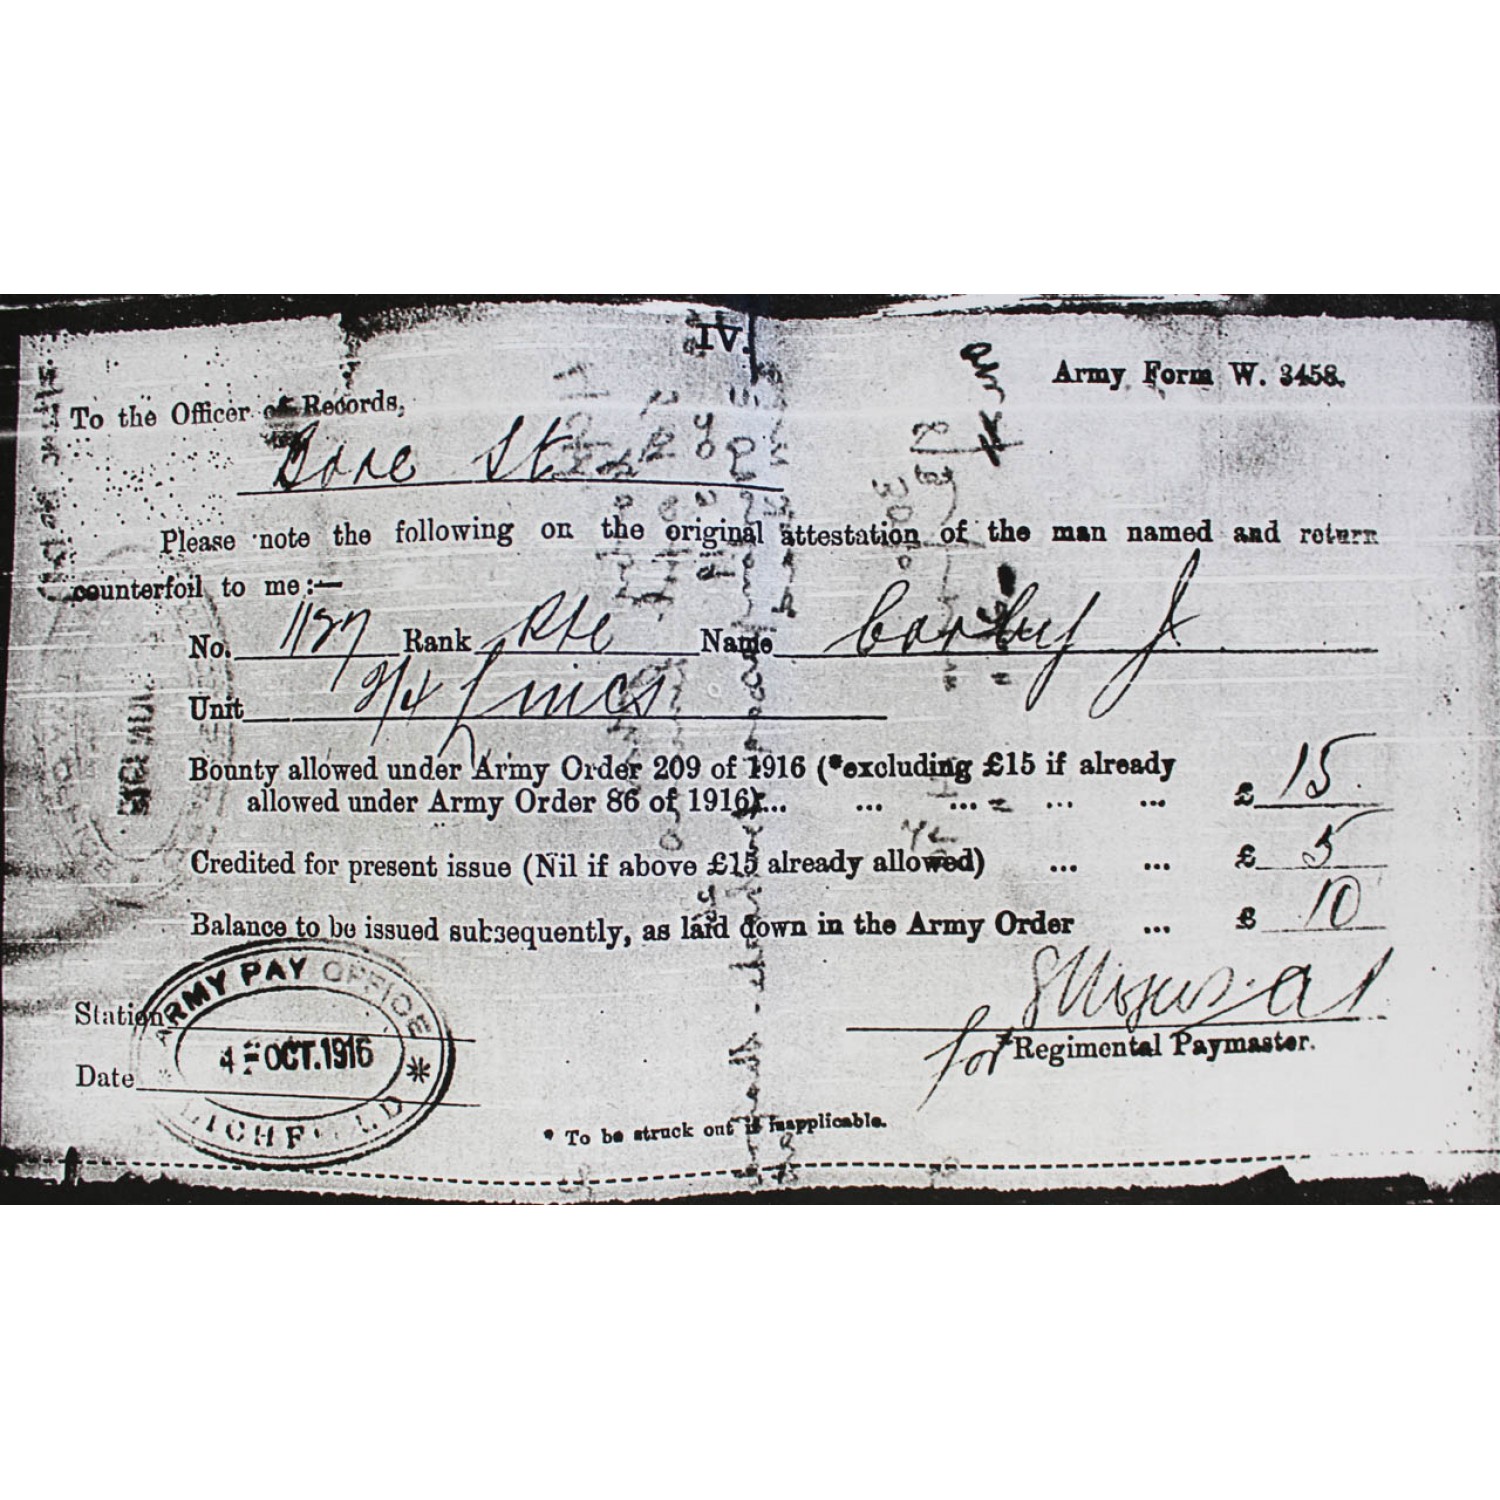 IV.
Army Form W. 3458.
To the Officer of Records,
Dore St
Please note the following on the original attestation of the man named and return
counterfoil to me:—
No. 1127 Rank Pte Name Corby J
Unit 2/4 Lincs
Bounty allowed under Army Order 209 of 1916 (*excluding £15 if already
allowed under Army Order 86 of 1916)... ... ... ... ... £ 15
Credited for present issue (Nil if above £15 already allowed) ... ... £ 5
Balance to be issued subsequently, as laid down in the Army Order ... £ 10
ARMY PAY OFFICE
Station
4 - OCT. 1916
for Regimental Paymaster.
Date
LICHFIELD
* To be struck out if inapplicable.